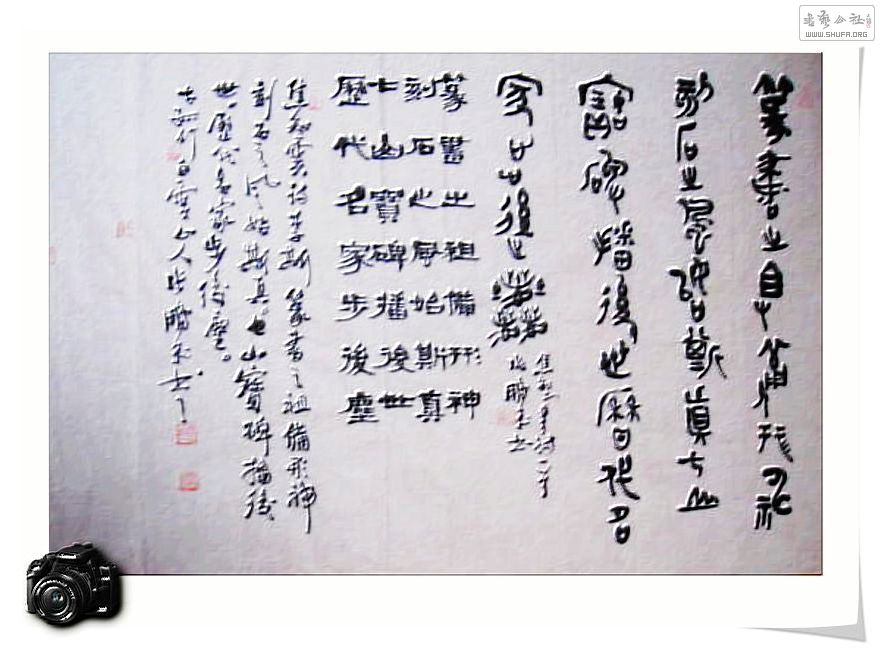 篆書之祖備形神
刻石之風始斯真七山
寶碑播後世歷代名
家步後塵
篆書之祖備形神
刻石之風始斯真
七山寶碑播後世
歷代名家步後塵
焦知雲詩李斯篆書之祖備形神
刻石之風始斯真七山寶碑播後
世歷代名家步後塵。
白雲山人
书艺公社
WWW.SHUFA.ORG